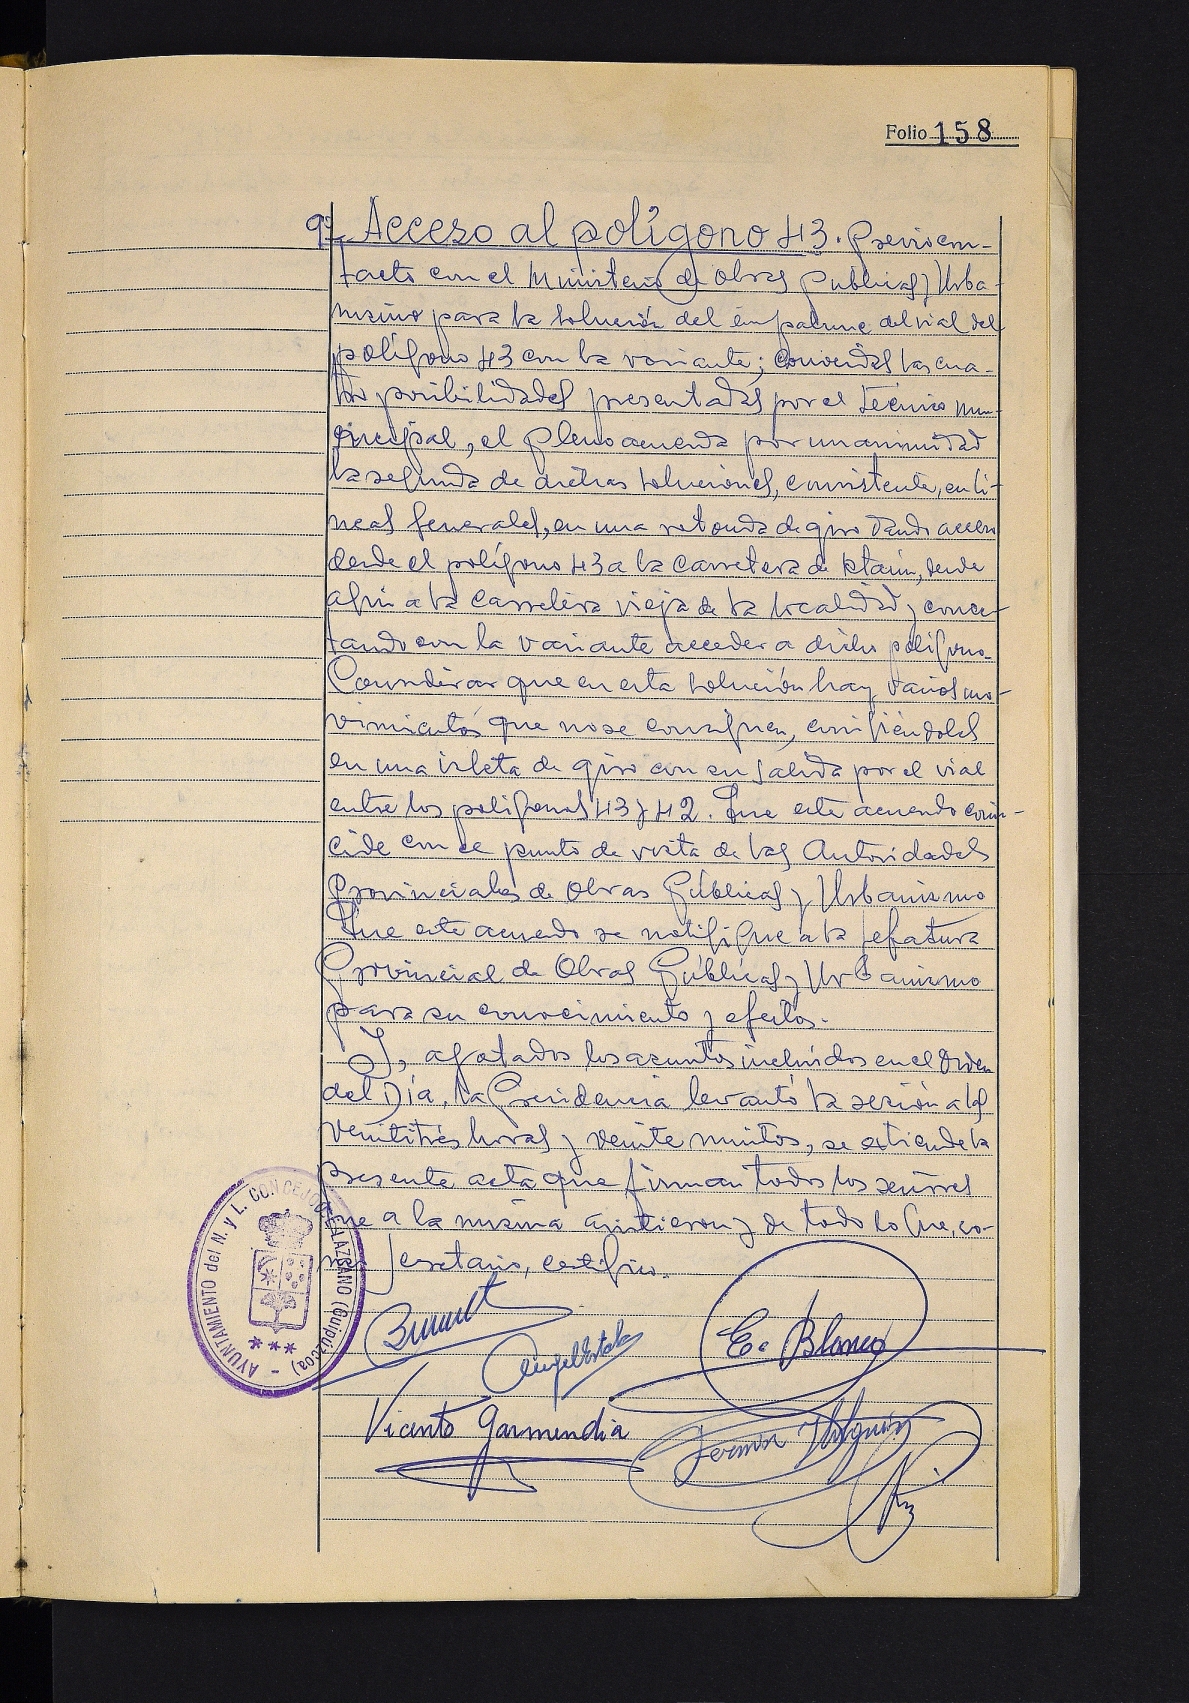 Folio 158
9º Acceso al polígono 43. Previo con-
tacto con el Ministerio de Obras Publicas y Urba-
nismo para la solución del empalme del vial del
polígono 43 con la variante; conocidas las cua-
tro posibilidades presentadas por el Técnico mu-
nicipal, el Pleno acuerda por unanimidad
la segunda de dichas soluciones, consistente, en lí-
neas generales, en una rotonda de giro dando acceso
desde el polígono 43 a la Carretera de Ataún, desde
ahí a la Carretera vieja de la localidad y conec-
tando con la variante acceder a dicho polígono.
Considerar que en esta solución hay varios mo-
vimientos que no se consiguen,
en una isleta de giro con su salida por el vial
entre los polígonos 43 y 42. Que este acuerdo coin-
cide con el punto de vista de las Autoridades
Provinciales de Obras Públicas y Urbanismo
Que este acuerdo se notifique a la Jefatura
Provincial de Obras Públicas y Urbanismo
para su conocimiento y efectos.
Y, agotados los asuntos incluídos en el Orden
del Día, la Presidencia levantó la sesión a las
veintitrés horas y veinte minutos, se extiende la
presente acta que firman todos los señores
que a la misma asistieron y de todo lo que, co-
mo Secretario, certifico.
AYUNTAMIENTO del N. y L. CONCEJO DE LAZCANO (Guipúzcoa)
E. Blanco
Vicente Garmendia
Fermin